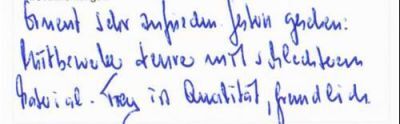 Erneut sehr zufrieden gestern gesehen:
Mitbewerber teurer mit schlechterem
Material. Treu in Qualität, freundlich